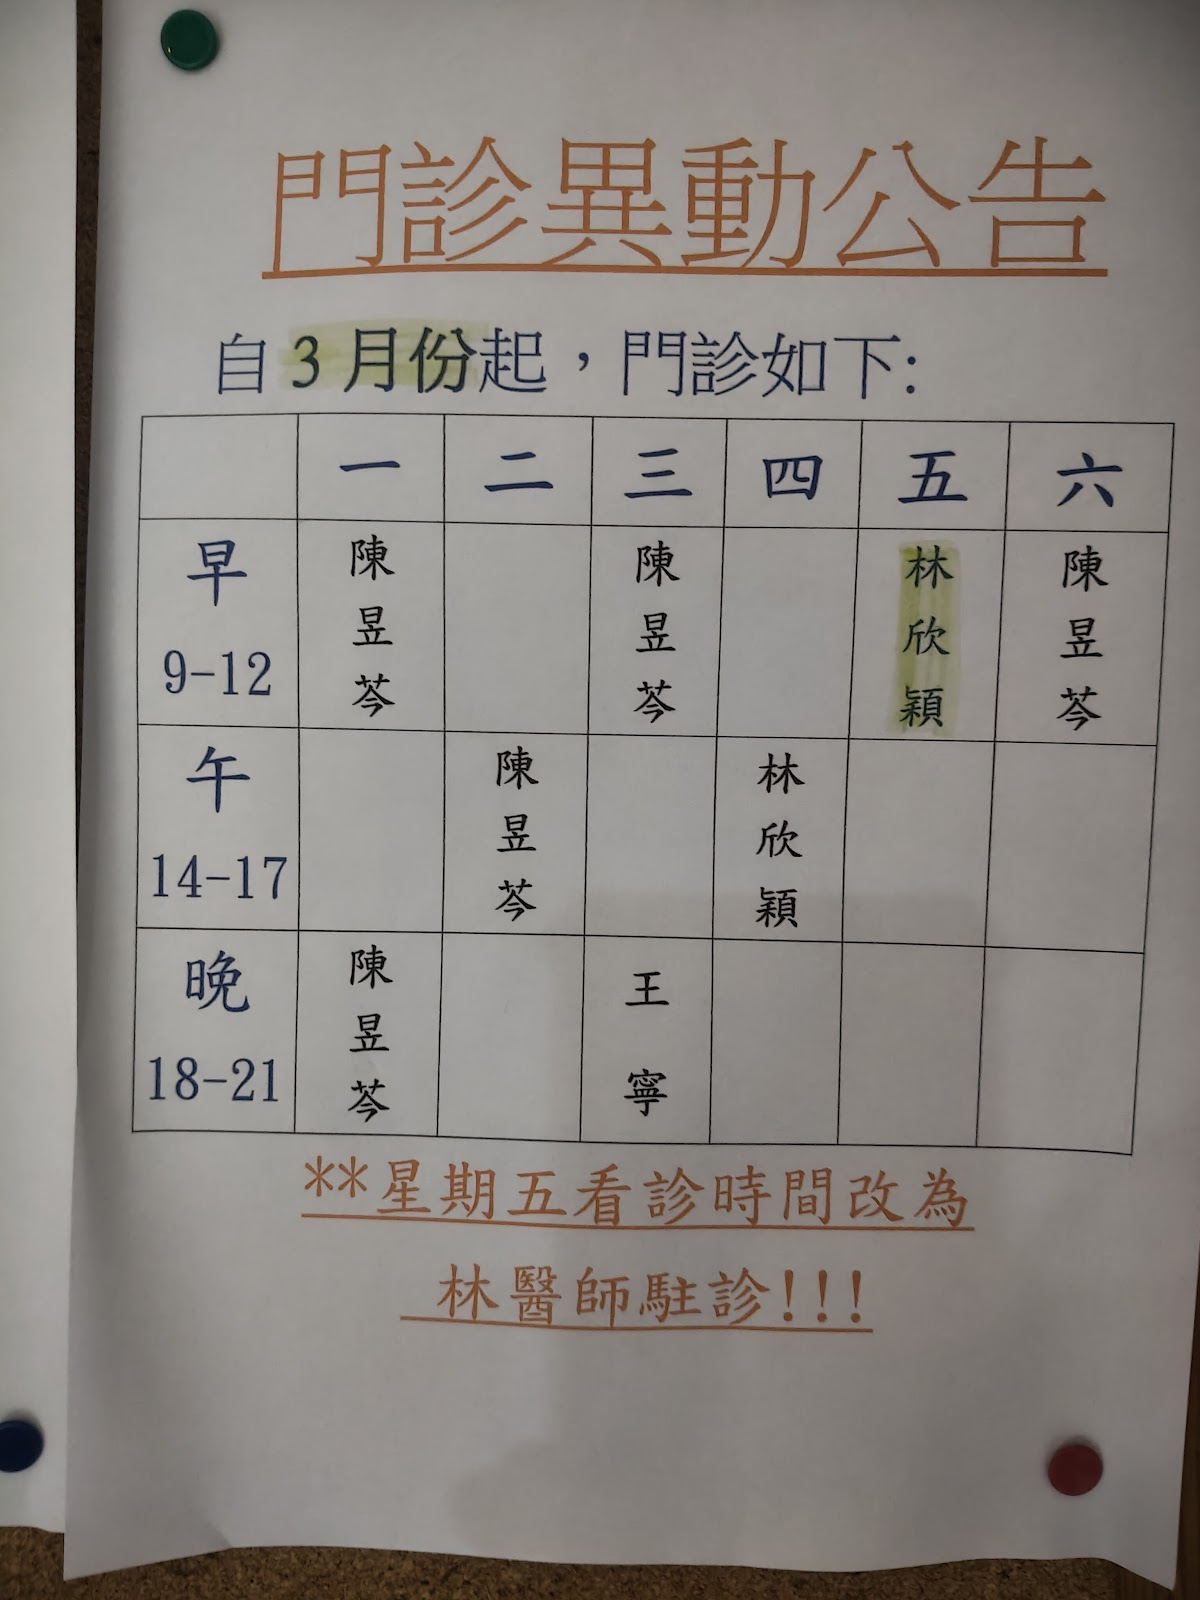 門診異動公告
自3月份起，門診如下:
一 二 三 四 五 六
早 9-12 陳昱芩 陳昱芩 林欣穎 陳昱芩
午 14-17 陳昱芩 林欣穎
晚 18-21 陳昱芩 王寧
**星期五看診時間改為
林醫師駐診!!!